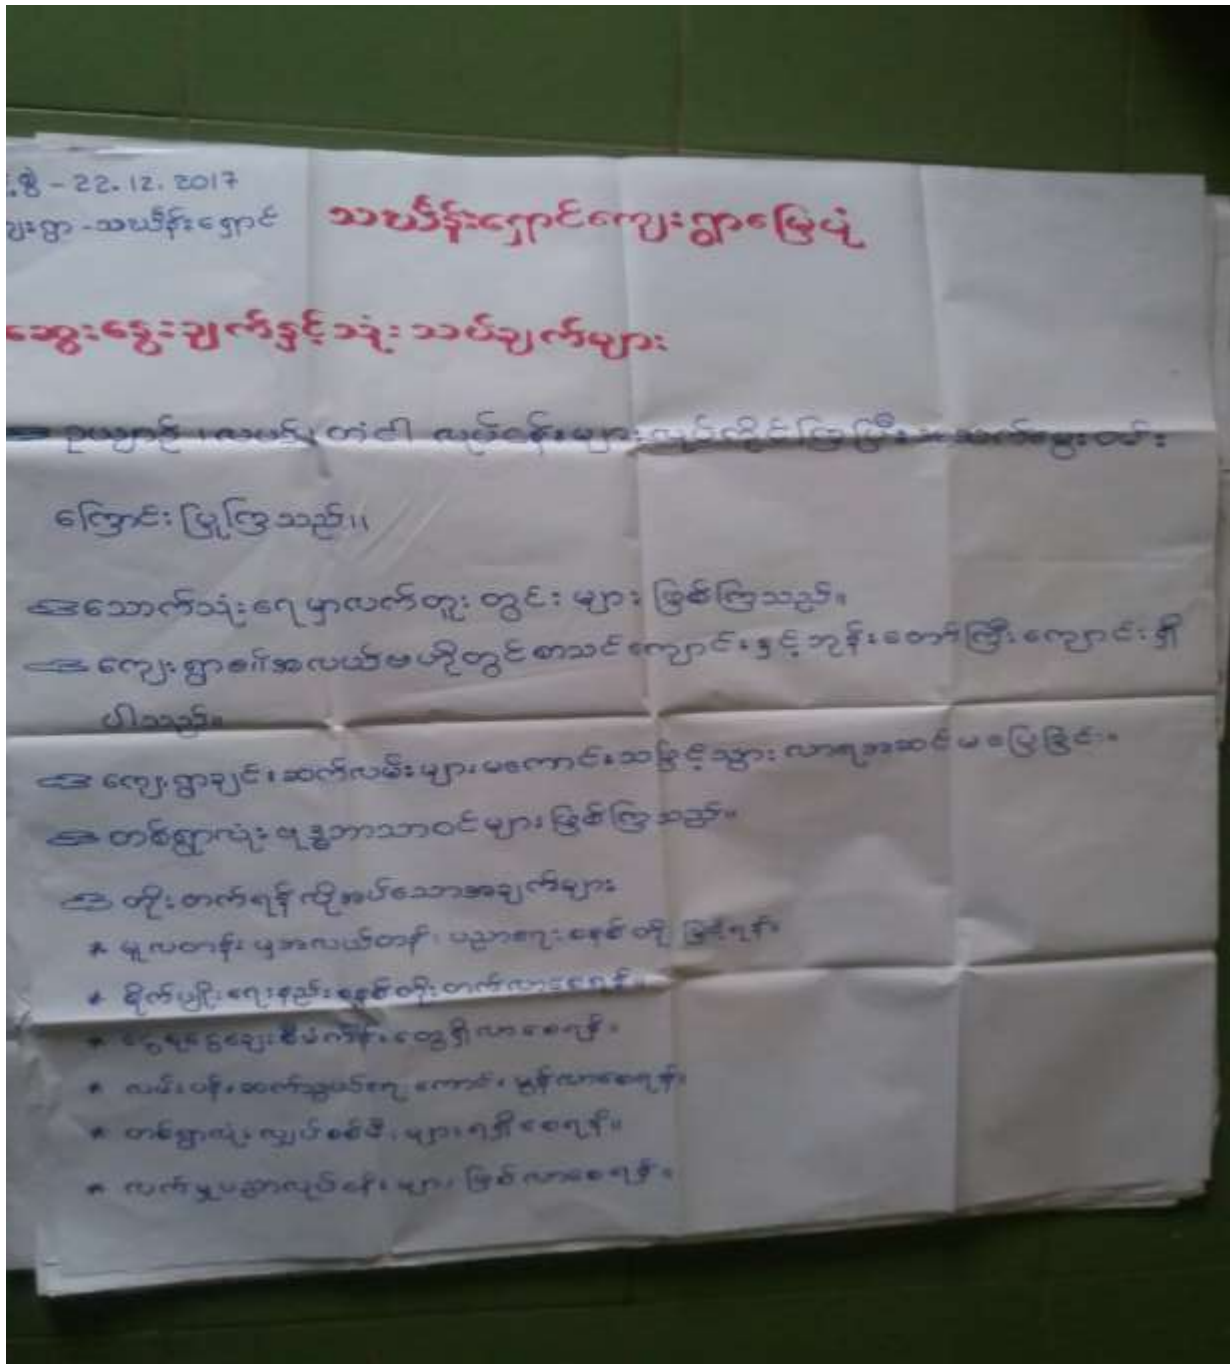 .စွဲ - 22.12.2017
ျေးရွာ - သင်္ဃန်းရှောင်
သင်္ဃန်းရှောင်ကျေးရွာမြေပုံ
ဆွေးနွေးချက်နှင့်သုံးသပ်ချက်များ
ဥယျာဉ်၊ လယ်၊ တံငါ လုပ်ငန်းများ လုပ်ကိုင်ကြပြီး အသက်မွေးဝမ်း
ကြောင်းပြုကြသည်။
သောက်သုံးရေမှာလက်တူးတွင်းများ ဖြစ်ကြသည်။
ကျေးရွာ၏အလယ်ဗဟိုတွင်စာသင်ကျောင်းနှင့်ဘုန်းတော်ကြီးကျောင်းရှိ
ပါသည်။
ကျေးရွာချင်းဆက်လမ်းများမကောင်းသဖြင့်သွားလာရအဆင်မပြေခြင်း။
တစ်ရွာလုံးဗုဒ္ဓဘာသာဝင်များဖြစ်ကြသည်။
တိုးတက်ရန်လိုအပ်သောအချက်များ
* မူလတန်းမှအလယ်တန်း ပညာရေးစနစ်တို့ မြှင့်ရန်။
* စိုက်ပျိုးရေးနည်းစနစ်တိုးတက်လာစေရန်။
* ငွေစုငွေချေးစီမံကိန်းတွေရှိလာစေရန်။
* လမ်းပန်းဆက်သွယ်ရေး ကောင်းမွန်လာစေရန်။
* တစ်ရွာလုံးလျှပ်စစ်မီးများရရှိစေရန်။
* လက်မှုပညာလုပ်ငန်းများ ဖြစ်လာစေရန်။